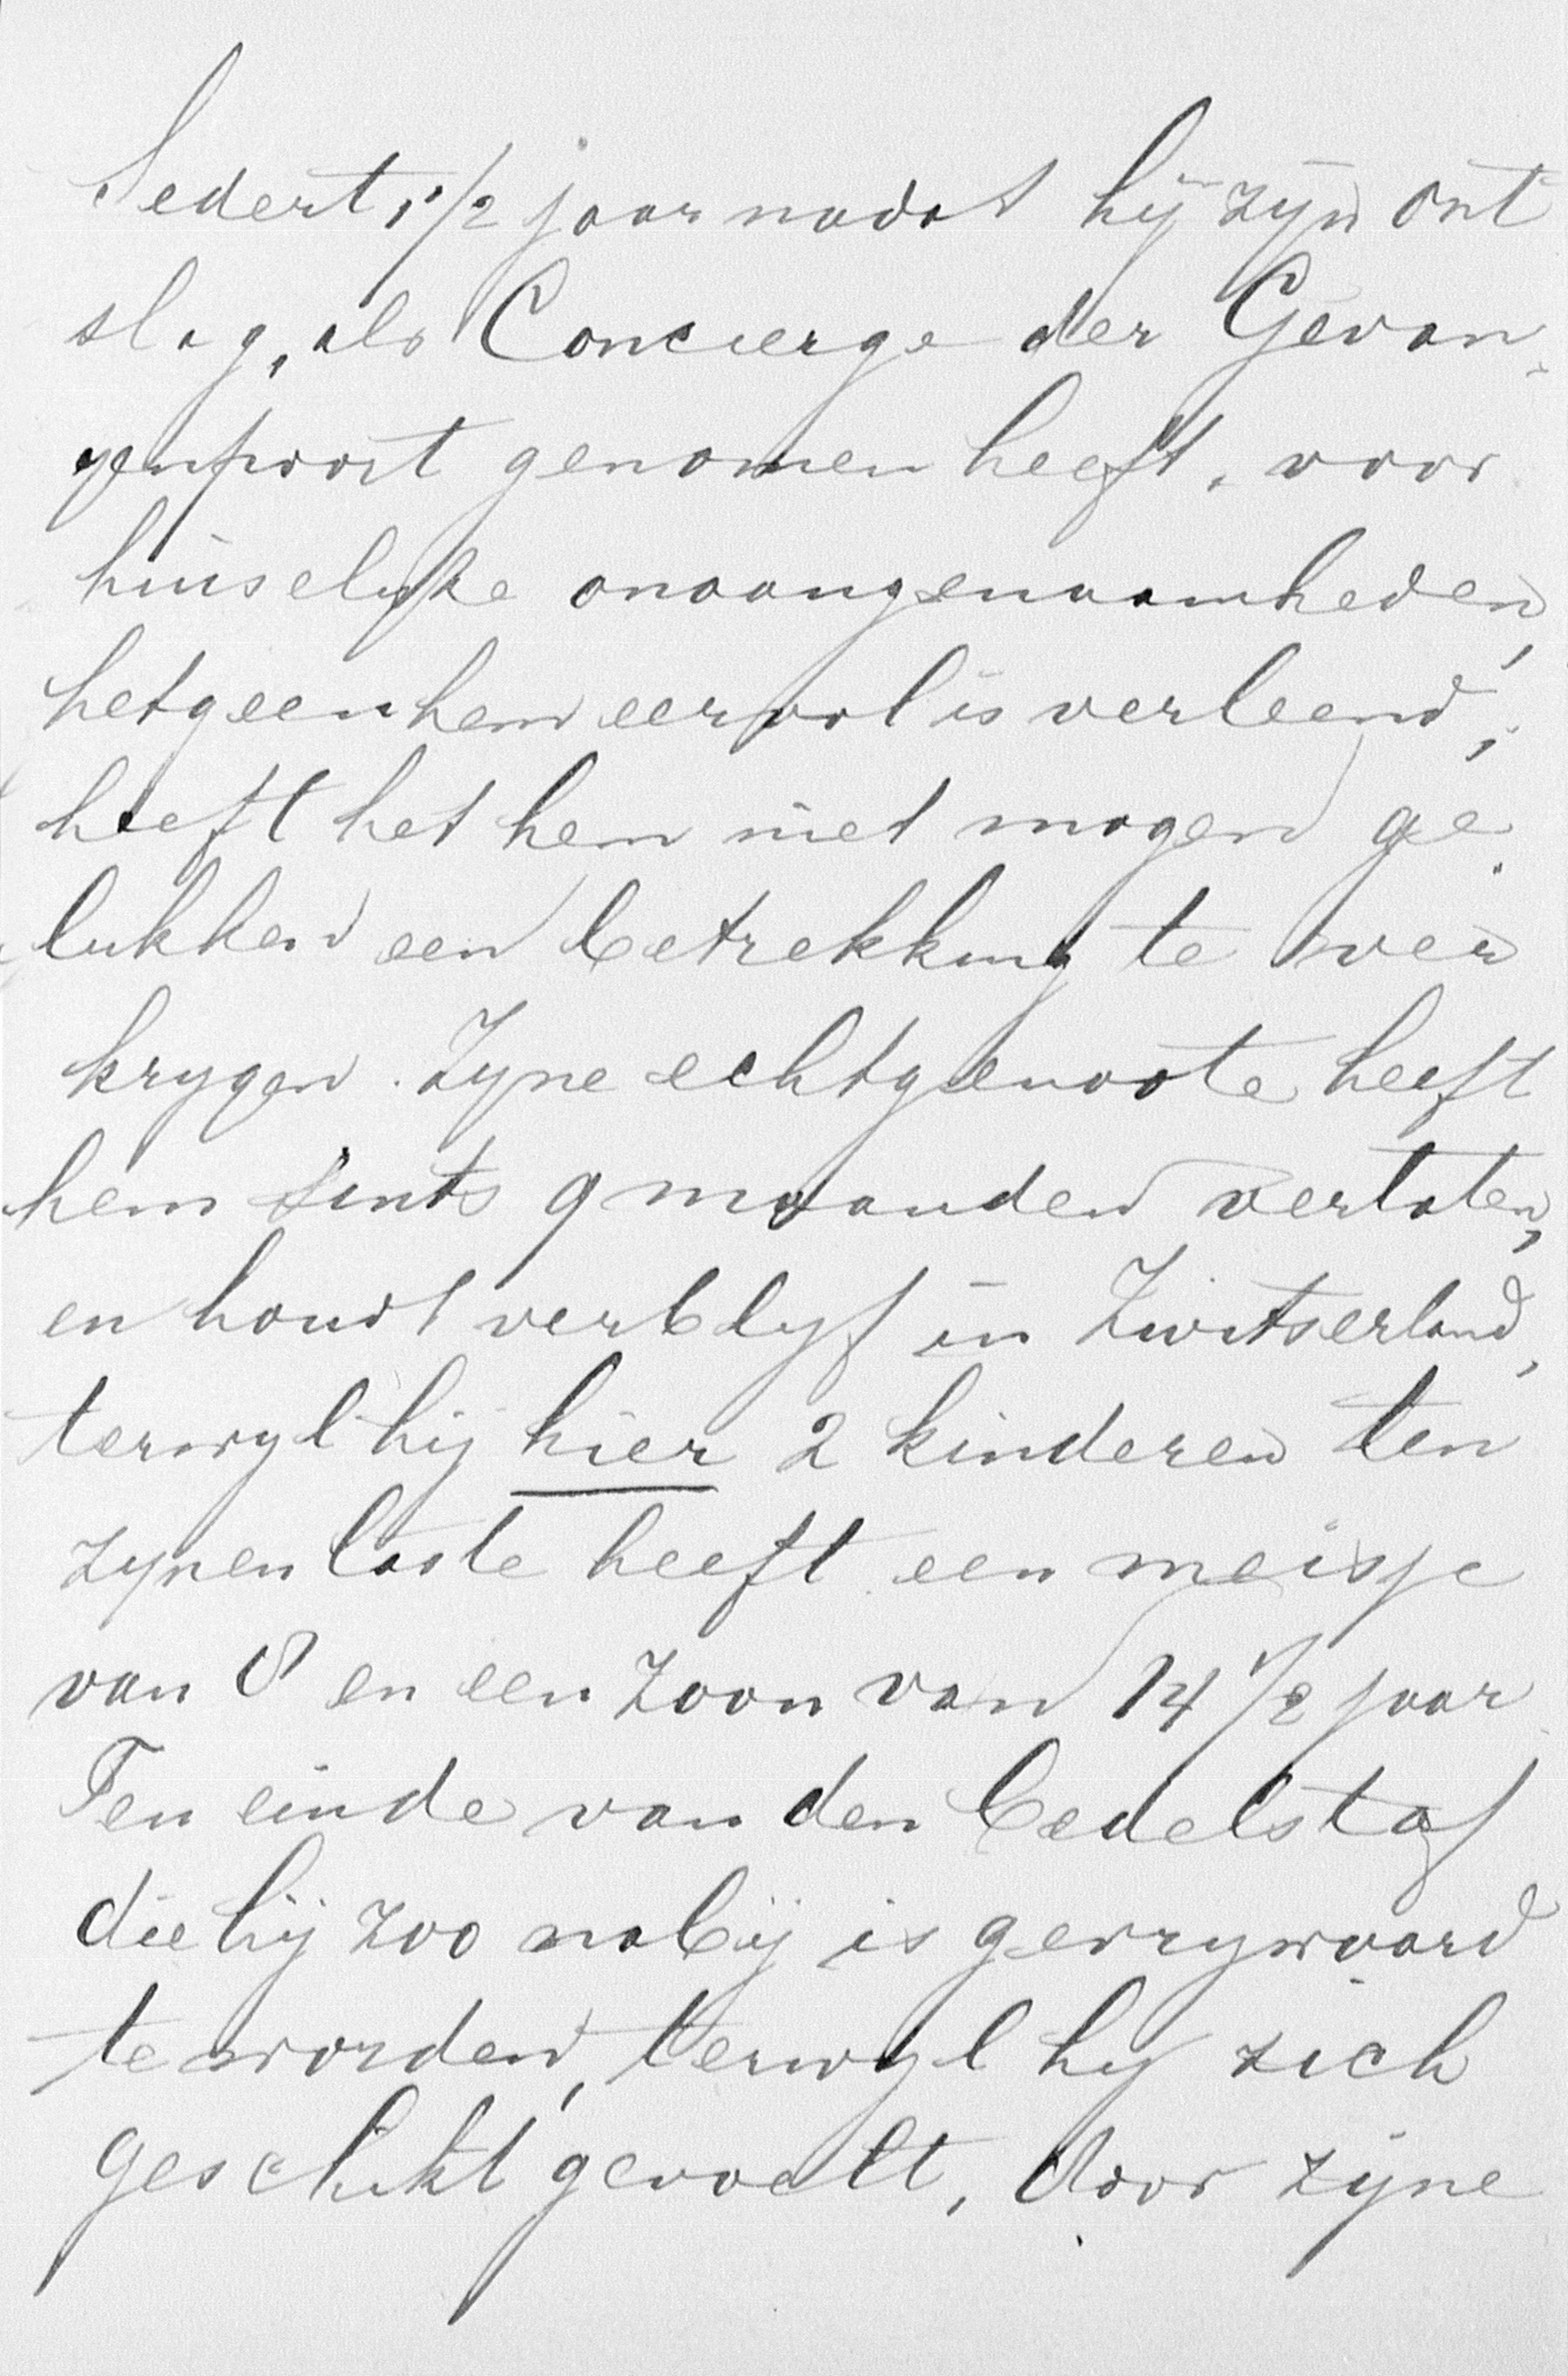 Sedert 1 1/2 jaar nadat hij zijn ont
slag, als Concierge der Gevan,
genpoort genomen heeft, voor
huiselyke onaangenaamheden,
hetgeen hem eervol is verleend,
heeft het hem niet mogen ge
lukken een betrekking te ver
krygen. Zyne echtgenoote heeft
hem sints 9 maanden verlaten,
en houdt verblyf in Zwitserland,
terwyl hij hier 2 kinderen ten
zynen laste heeft een meisje
van 8 en een zoon van 14 1/2 jaar
Ten einde van den bedelstaf
die hij zoo nabij is gevrywaard
te worden, terwyl hy zich
geschikt gevoelt, door zijne